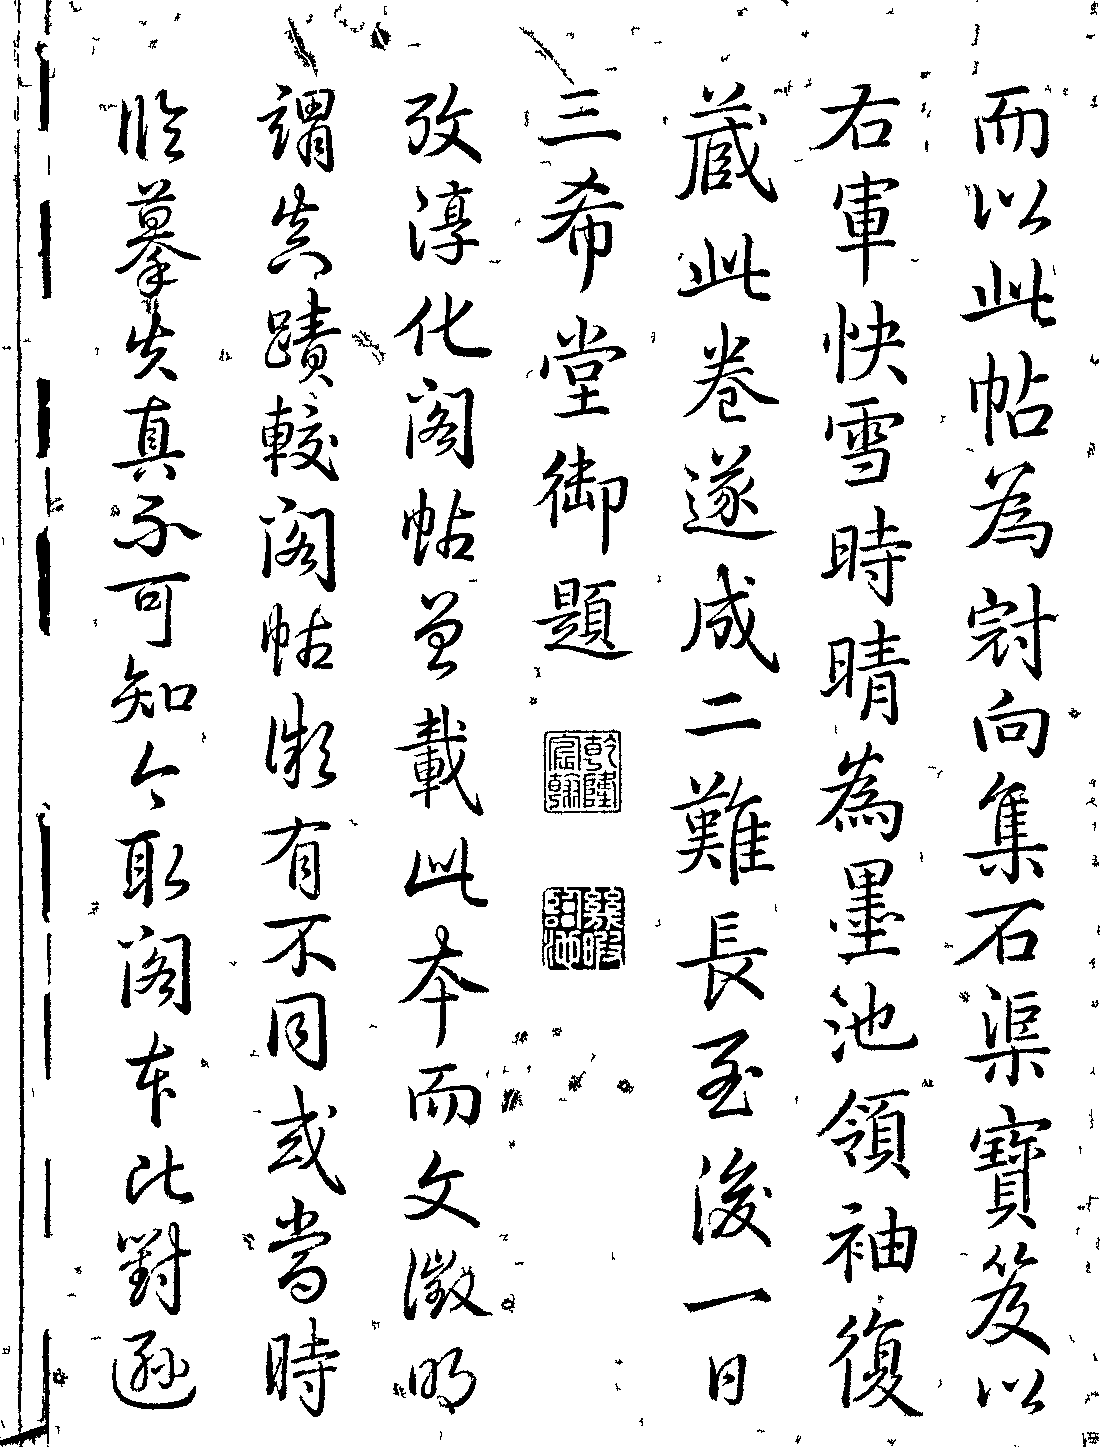 而以此帖為冠向集石渠寶笈以
右軍快雪時晴為墨池領袖復
藏此卷遂成二難長至後一日
三希堂御題
乾隆宸翰
攷淳化閣帖曾載此本而文徵明
謂真蹟較閣帖微有不同或當時
臨摹失真不可知今取閣本比對遜